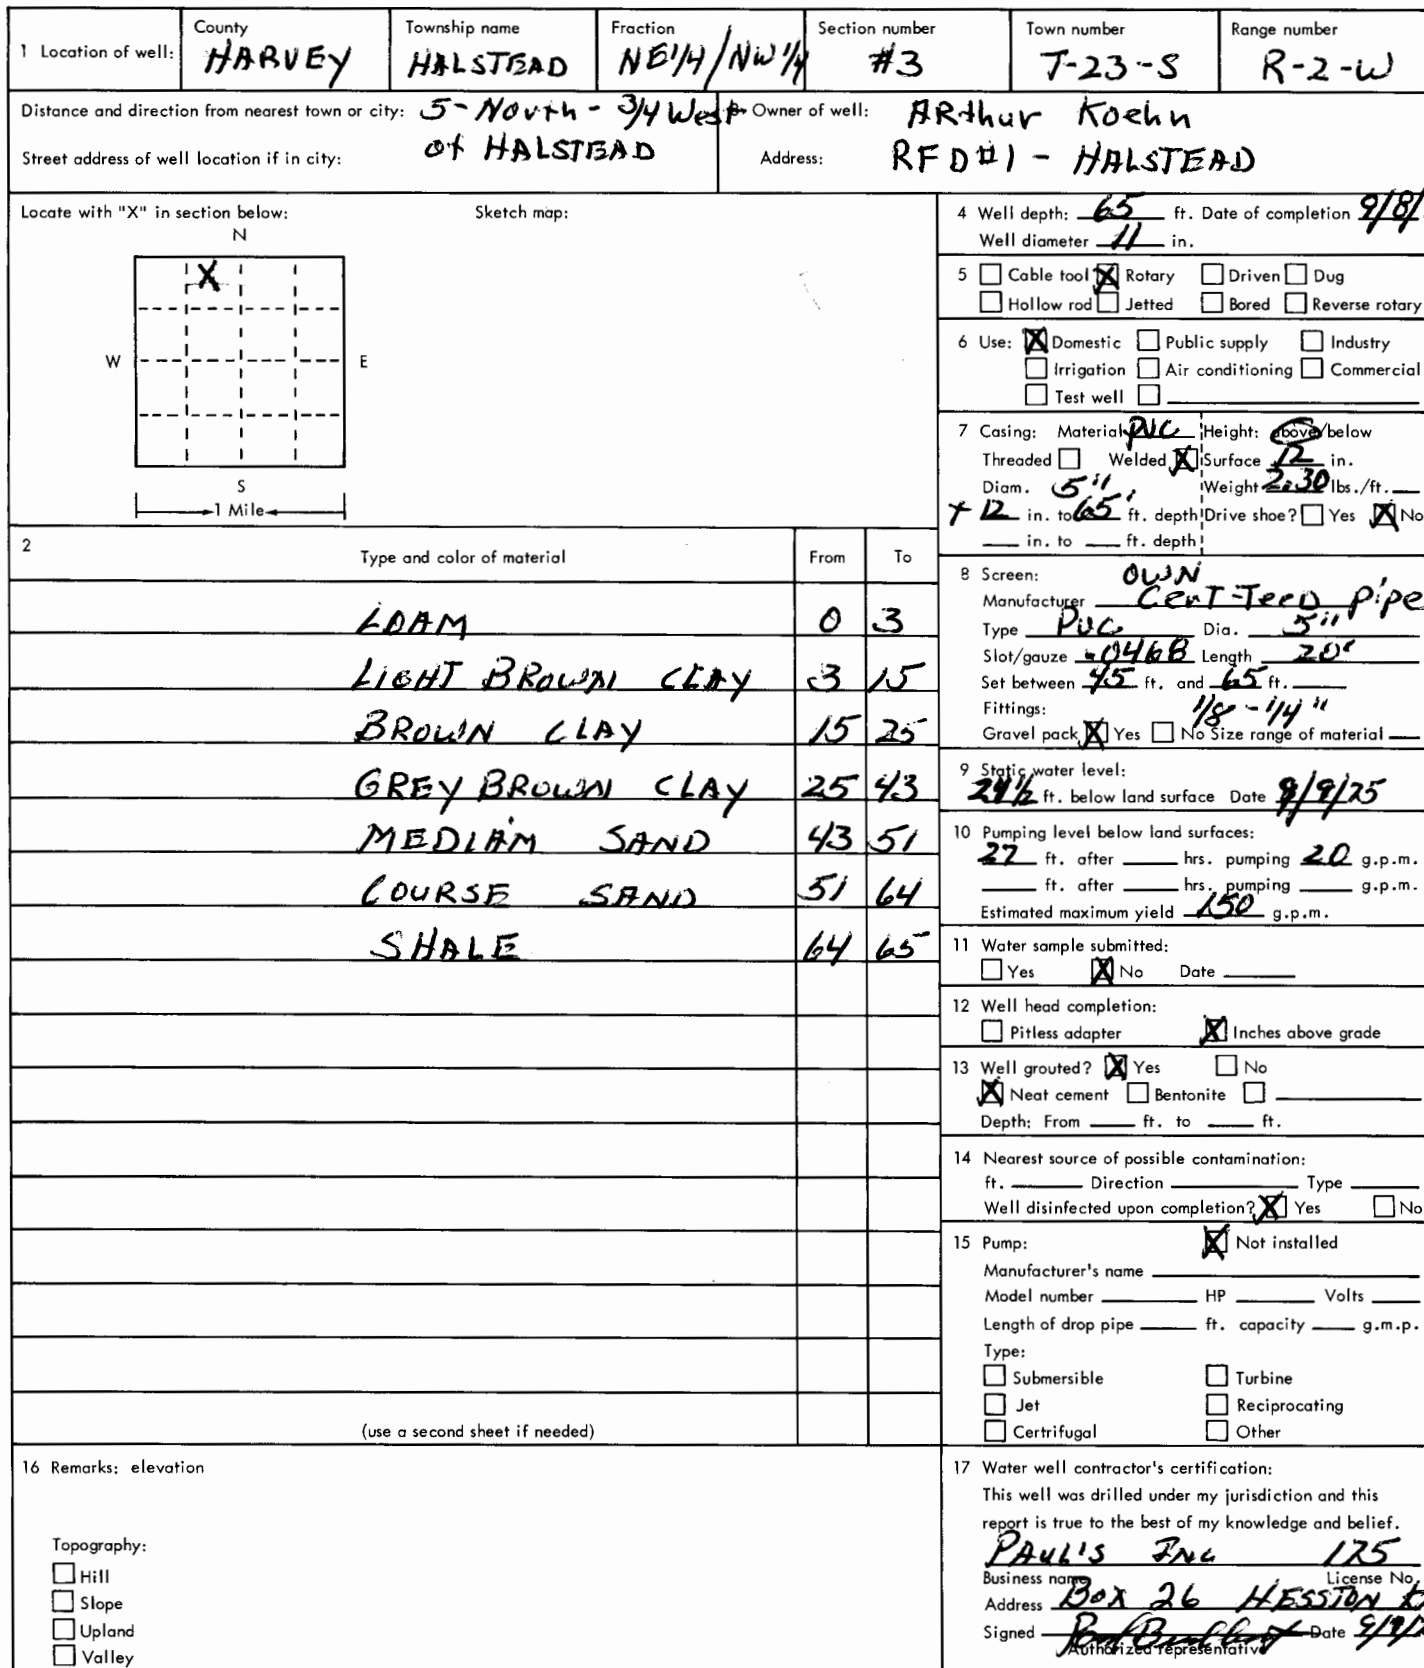 1 Location of well: County HARVEY Township name HALSTEAD Fraction NE1/4/NW1/4 Section number #3 Town number T-23-S Range number R-2-W
Distance and direction from nearest town or city: 5-North - 3/4 West
of HALSTEAD
Street address of well location if in city:
Owner of well: ARthur Koehn
Address: RFD#1 - HALSTEAD
Locate with "X" in section below: Sketch map:
N
X
W E
S
1 Mile
2 Type and color of material From To
LOAM 0 3
LIGHT BROWN CLAY 3 15
BROWN CLAY 15 25
GREY BROWN CLAY 25 43
MEDIAM SAND 43 51
COURSE SAND 51 64
SHALE 64 65
(use a second sheet if needed)
16 Remarks: elevation
Topography:
Hill
Slope
Upland
Valley
4 Well depth: 65 ft. Date of completion 9/8/
Well diameter 11 in.
5 Cable tool X Rotary Driven Dug
Hollow rod Jetted Bored Reverse rotary
6 Use: X Domestic Public supply Industry
Irrigation Air conditioning Commercial
Test well
7 Casing: Material PVC Height: above/below
Threaded Welded X Surface 12 in.
Diam. 5" Weight 2.30 lbs./ft.
+ 12 in. to 65' ft. depth Drive shoe? Yes X No
in. to ft. depth
8 Screen: OWN
Manufacturer CerT-TeeD Pipe
Type PVC Dia. 5"
Slot/gauze Length 20'
Set between 45 ft. and 65 ft.
Fittings: 1/8 - 1/4 "
Gravel pack X Yes No Size range of material
9 Static water level:
24 1/2 ft. below land surface Date 9/9/75
10 Pumping level below land surfaces:
27 ft. after hrs. pumping 20 g.p.m.
ft. after hrs. pumping g.p.m.
Estimated maximum yield 150 g.p.m.
11 Water sample submitted:
Yes X No Date
12 Well head completion:
Pitless adapter X Inches above grade
13 Well grouted? X Yes No
X Neat cement Bentonite
Depth: From ft. to ft.
14 Nearest source of possible contamination:
ft. Direction Type
Well disinfected upon completion? X Yes No
15 Pump: X Not installed
Manufacturer's name
Model number HP Volts
Length of drop pipe ft. capacity g.m.p.
Type:
Submersible Turbine
Jet Reciprocating
Certrifugal Other
17 Water well contractor's certification:
This well was drilled under my jurisdiction and this
report is true to the best of my knowledge and belief.
PAUL'S INC 175
Business name License No.
Address BOX 26 HESSTON
Signed Date 9/9/
Authorized representative